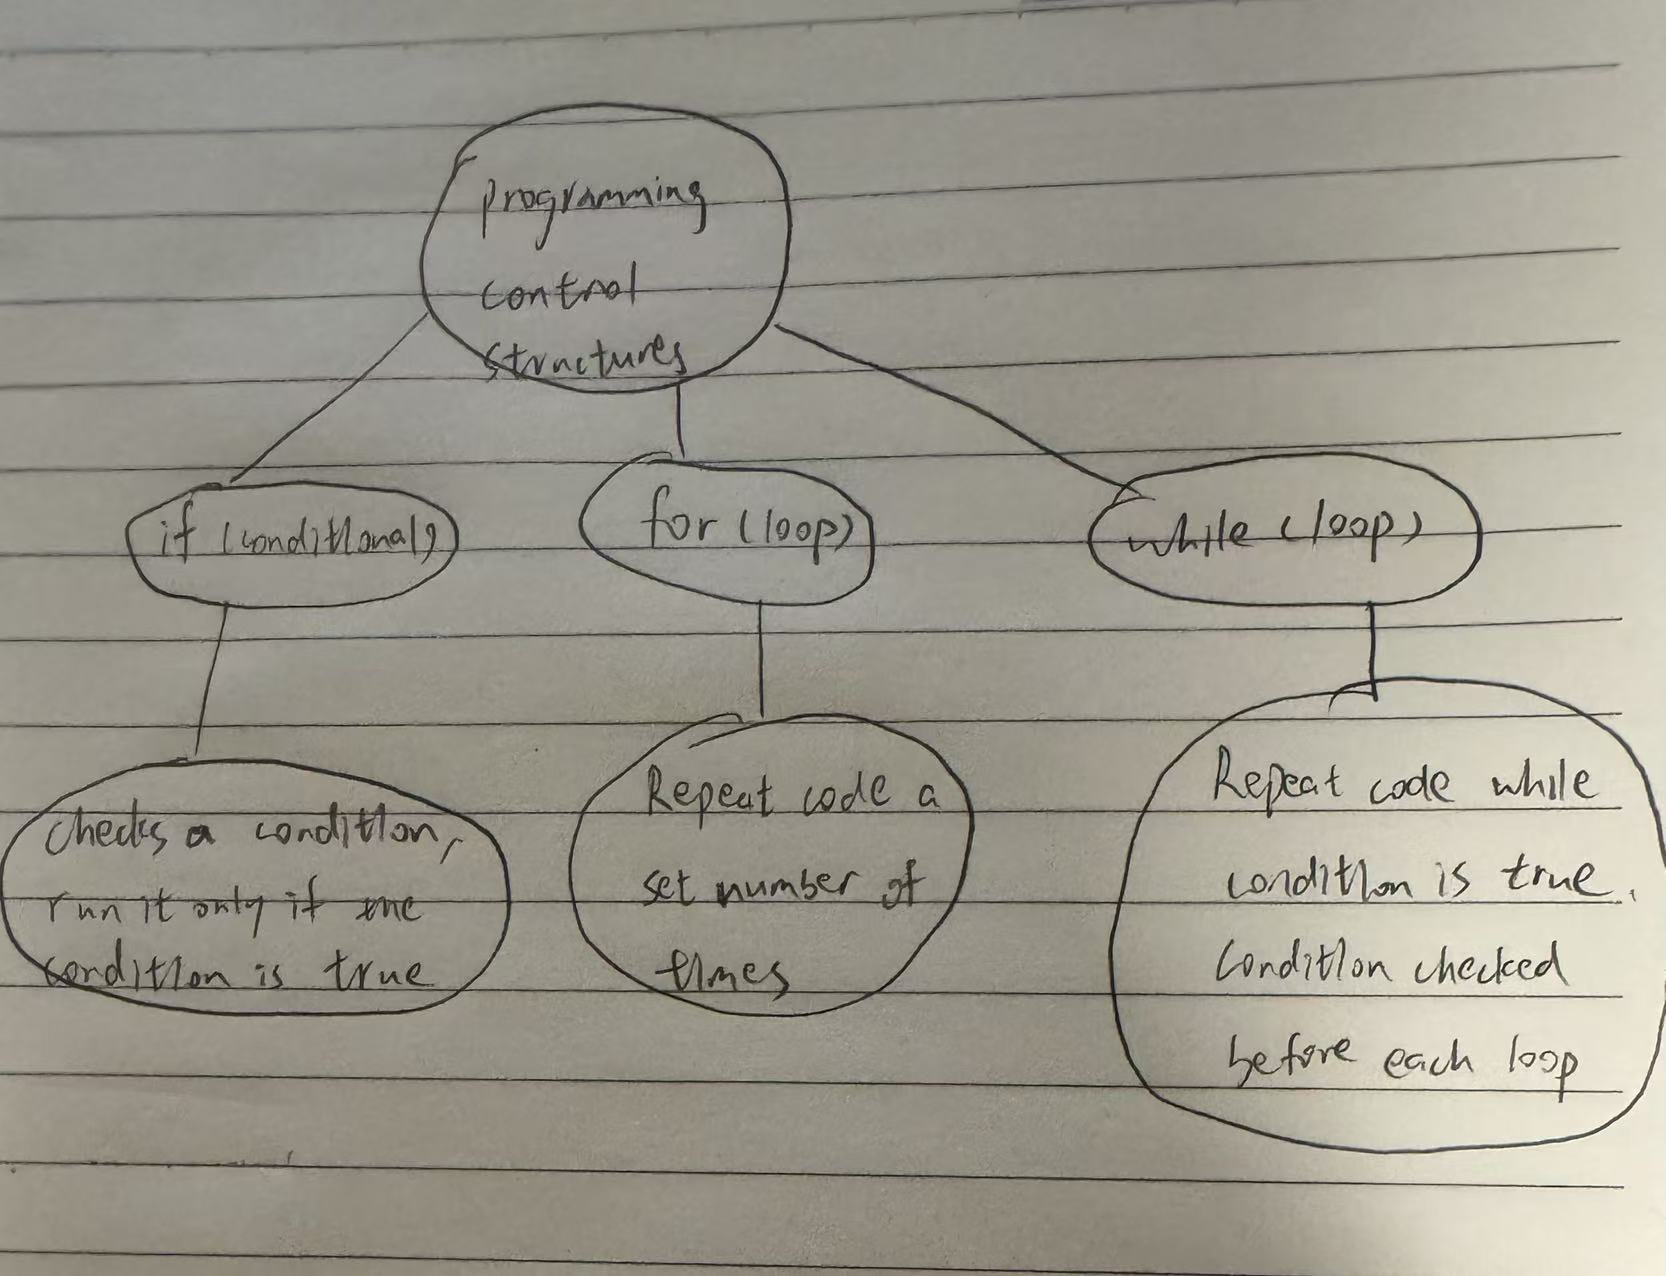 programming
control
structures
if (conditional)
for (loop)
while (loop)
checks a condition,
run it only if the
condition is true
Repeat code a
set number of
times
Repeat code while
condition is true.
Condition checked
before each loop